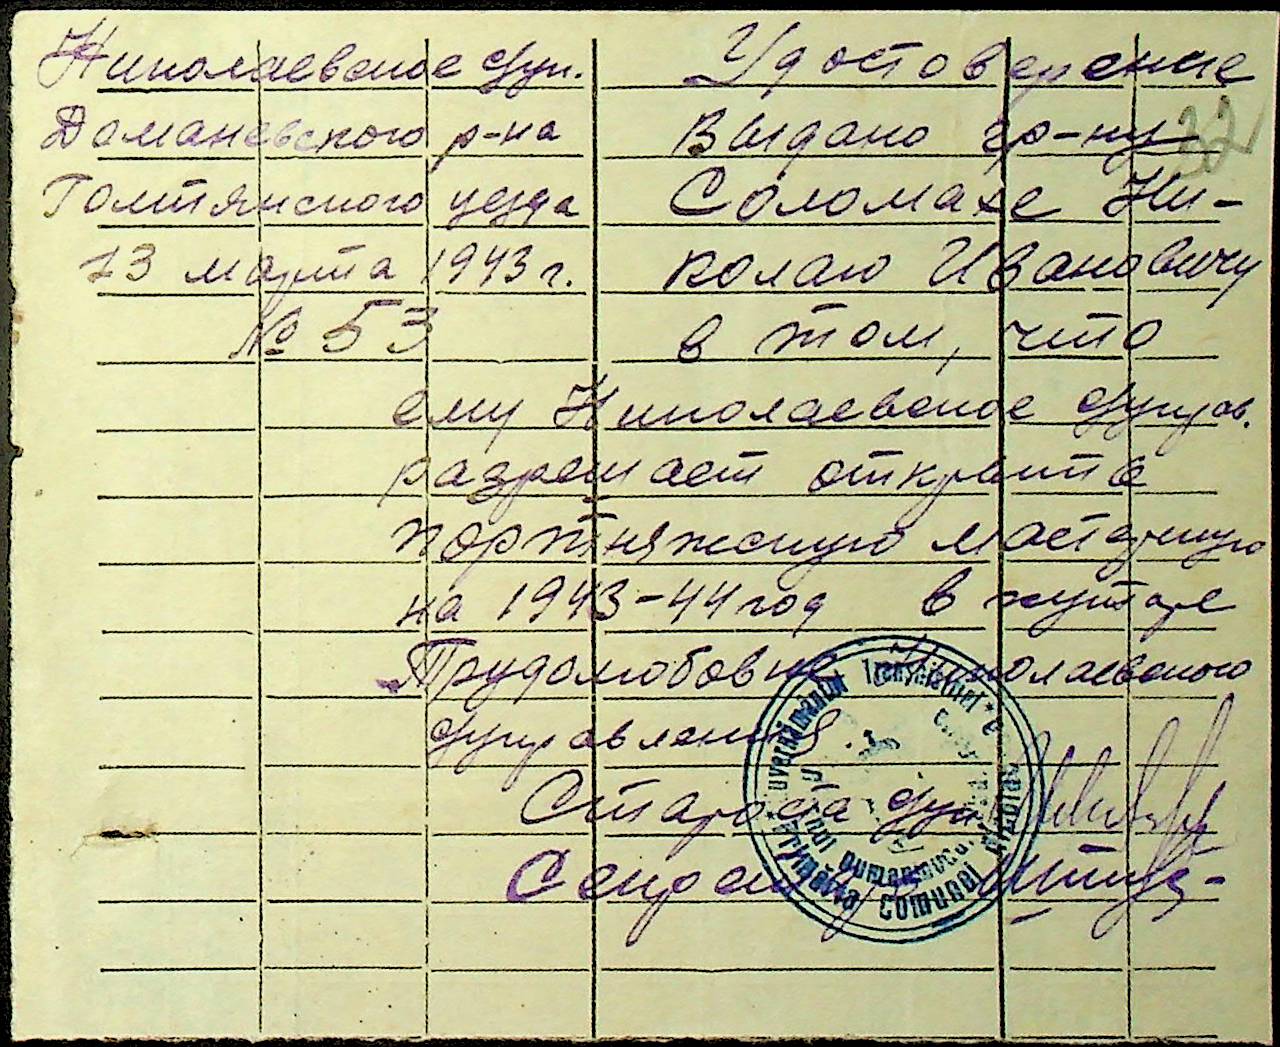 Николаевское с/уп.
Доманевского р-на
Голтянского уезда
13 марта 1943 г.
№ 53
Удостоверение
Выдано гр-ну
22
Соломахе Ни-
колаю Ивановичу
в том, что
ему Николаевское с/управ.
разрешает открыть
портняжескую мастерскую
на 1943-44 год в хуторе
Трудолюбовке Николаевского
с/управления.
Староста с/уп.
Секретарь
Guvernământul Transnistriei
Primăria Comunei